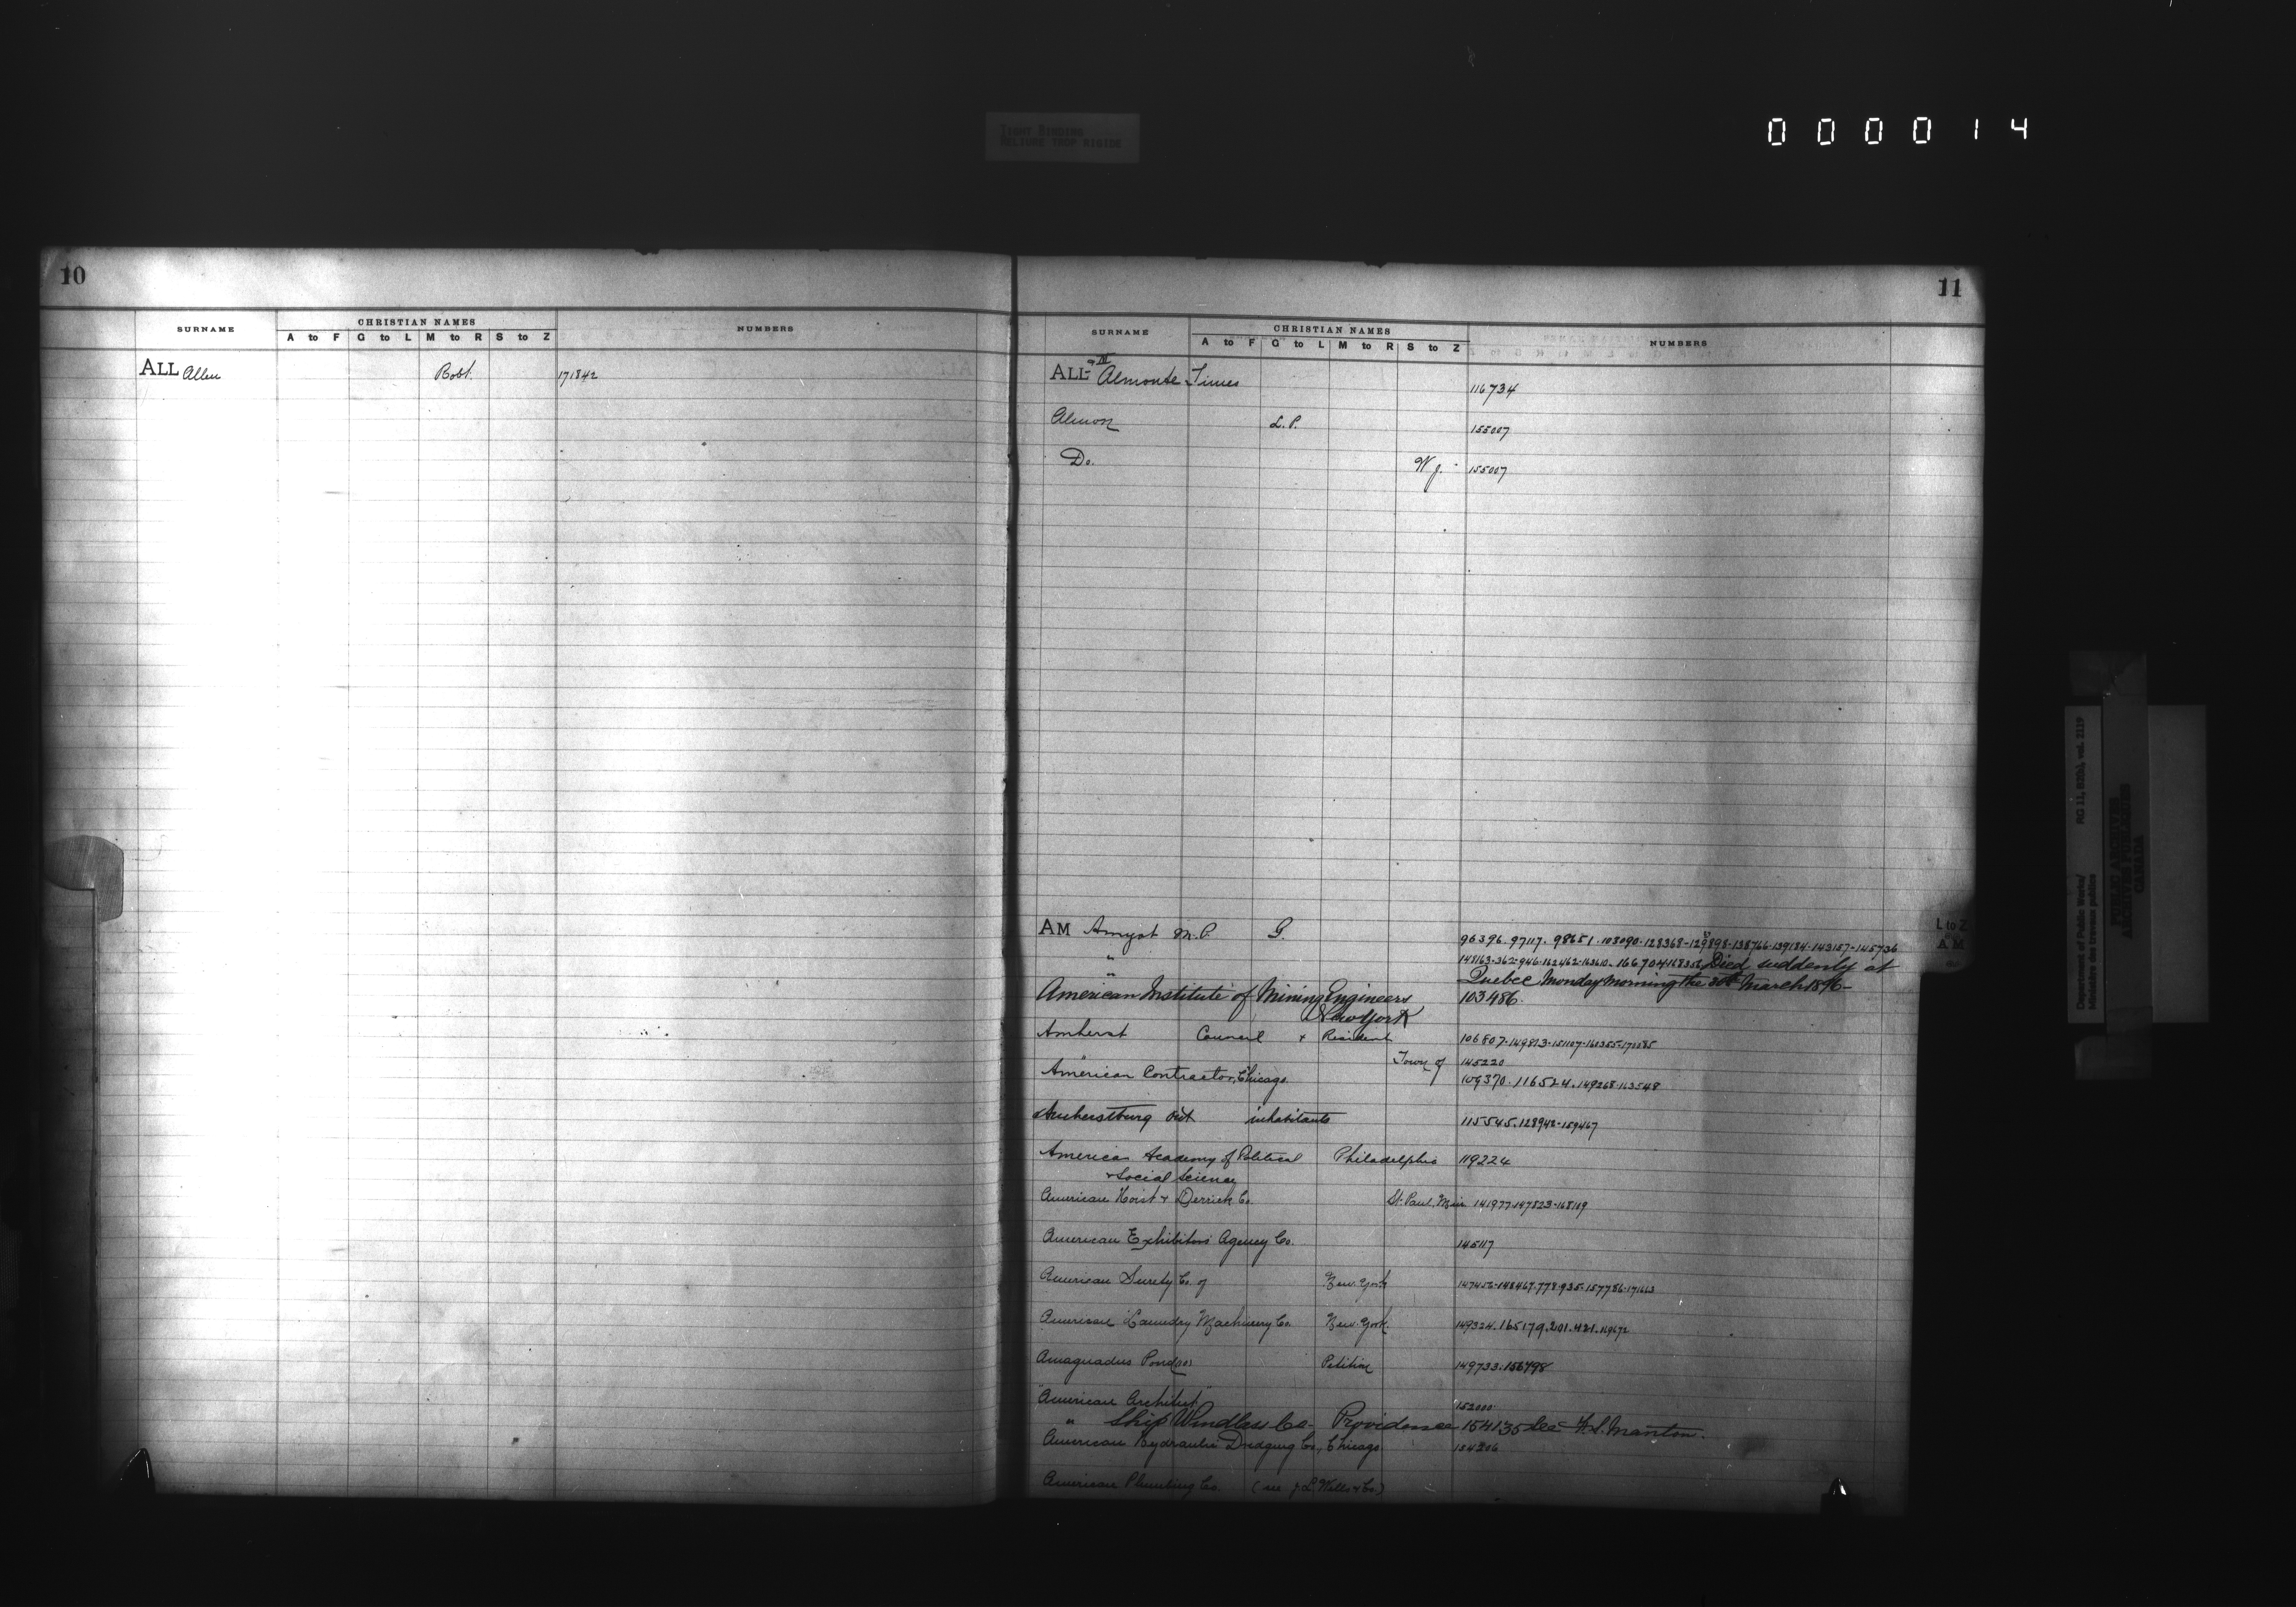 TIGHT BINDING
RELIURE TROP RIGIDE
000014
10
SURNAME
CHRISTIAN NAMES
A to F G to L M to R S to Z
NUMBERS
ALL Allen Robt. 171842
11
SURNAME
CHRISTIAN NAMES
A to F G to L M to R S to Z
NUMBERS
ALL Almonte Times 116734
Almon L. P. 155007
Do. W J. 155007
L to Z
AM
AM Amyot M.P. G. 96396. 97117. 98651. 103090. 128368-129898-138766-139184-143157-145736
" 148163-362-946-162462-163610-166704-168356 Died suddenly at
" Quebec Monday Morning the 30th March 1896-
American Institute of Mining Engineers 103486.
New York
Amherst Council + Resident 106807-149813-151107-160355-170085
" Town of 145220
American Contractor, Chicago 109370. 116524. 149268-163548
Amherstburg Ont inhabitants 115545. 128942-159467
American Academy of Political Philadelphia 119224
+ Social Science
American Hoist + Derrick Co. St. Paul, Minn 141977-147823-168109
American Exhibitors Agency Co. 145117
American Surety Co. of New York 147456-148467-778-935-157786-171663
American Laundry Machinery Co. New York 149324. 165179. 201. 421.
Amaguadus Pond Petition 149733. 156498
"American Architect" 152000
" Ship Windlass Co- Providence 154135 See F. S. Manton.
American Hydraulic Dredging Co, Chicago 154206
American Plumbing Co. (see J. L. Wells & Co.)
Department of Public Works/
Ministère des travaux publics
RG 11, B2(b), vol. 2119
PUBLIC ARCHIVES
ARCHIVES PUBLIQUES
CANADA